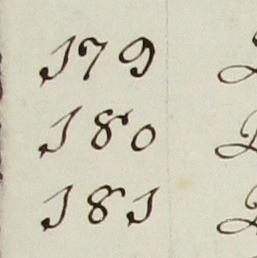 179
180
181